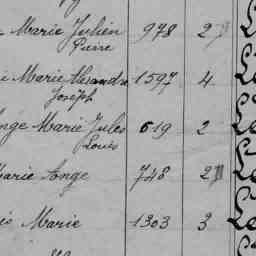 Marie Julien 978 2
Pierre
Marie Alexandre 1597 4
Joseph
Ange Marie Jules 619 2
Louis
Marie Ange 748 2
Marie 1303 3